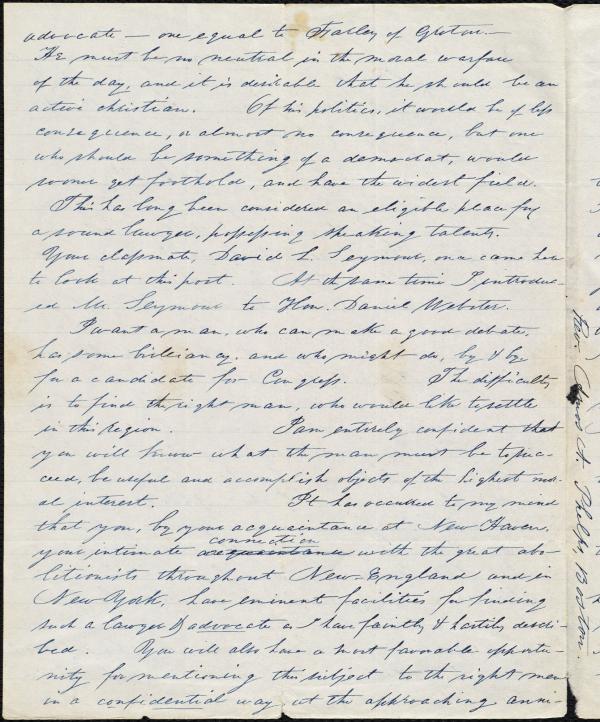 advocate — one equal to Farley of Groton.—
He must be no neutral in the moral warfare
of the day, and it is desirable that he should be an
active christian. Of his politics, it would be of less
consequence, or almost no consequence, but one
who should be something of a democrat, would
sooner get foothold, and have the widest field.
This has long been considered an eligible place for
a sound lawyer, possessing speaking talents.
Your classmate, David L. Seymour, once came here
to look at this post. At the same time I introduc-
ed Mr. Seymour to Hon. Daniel Webster.
I want a man, who can make a good debate,
has some brilliancy, and who might do, by & by
for a candidate for Congress. The difficulty
is to find the right man, who would like to settle
in this region. I am entirely confident that
you will know what the man must be to suc-
ceed, be useful and accomplish objects of the highest mor-
al interest. It has occurred to my mind
that you, by your acquaintance at New Haven,
connection
your intimate acquaintance with the great abo-
litionists throughout New-England and in
New York, have eminent facilities for finding
such a lawyer & advocate as I have faintly & hastily descri-
bed. You will also have a most favorable opportu-
nity for mentioning this subject to the right men
in a confidential way at the approaching anni-
Rev. Amos A. Phelps, Boston.